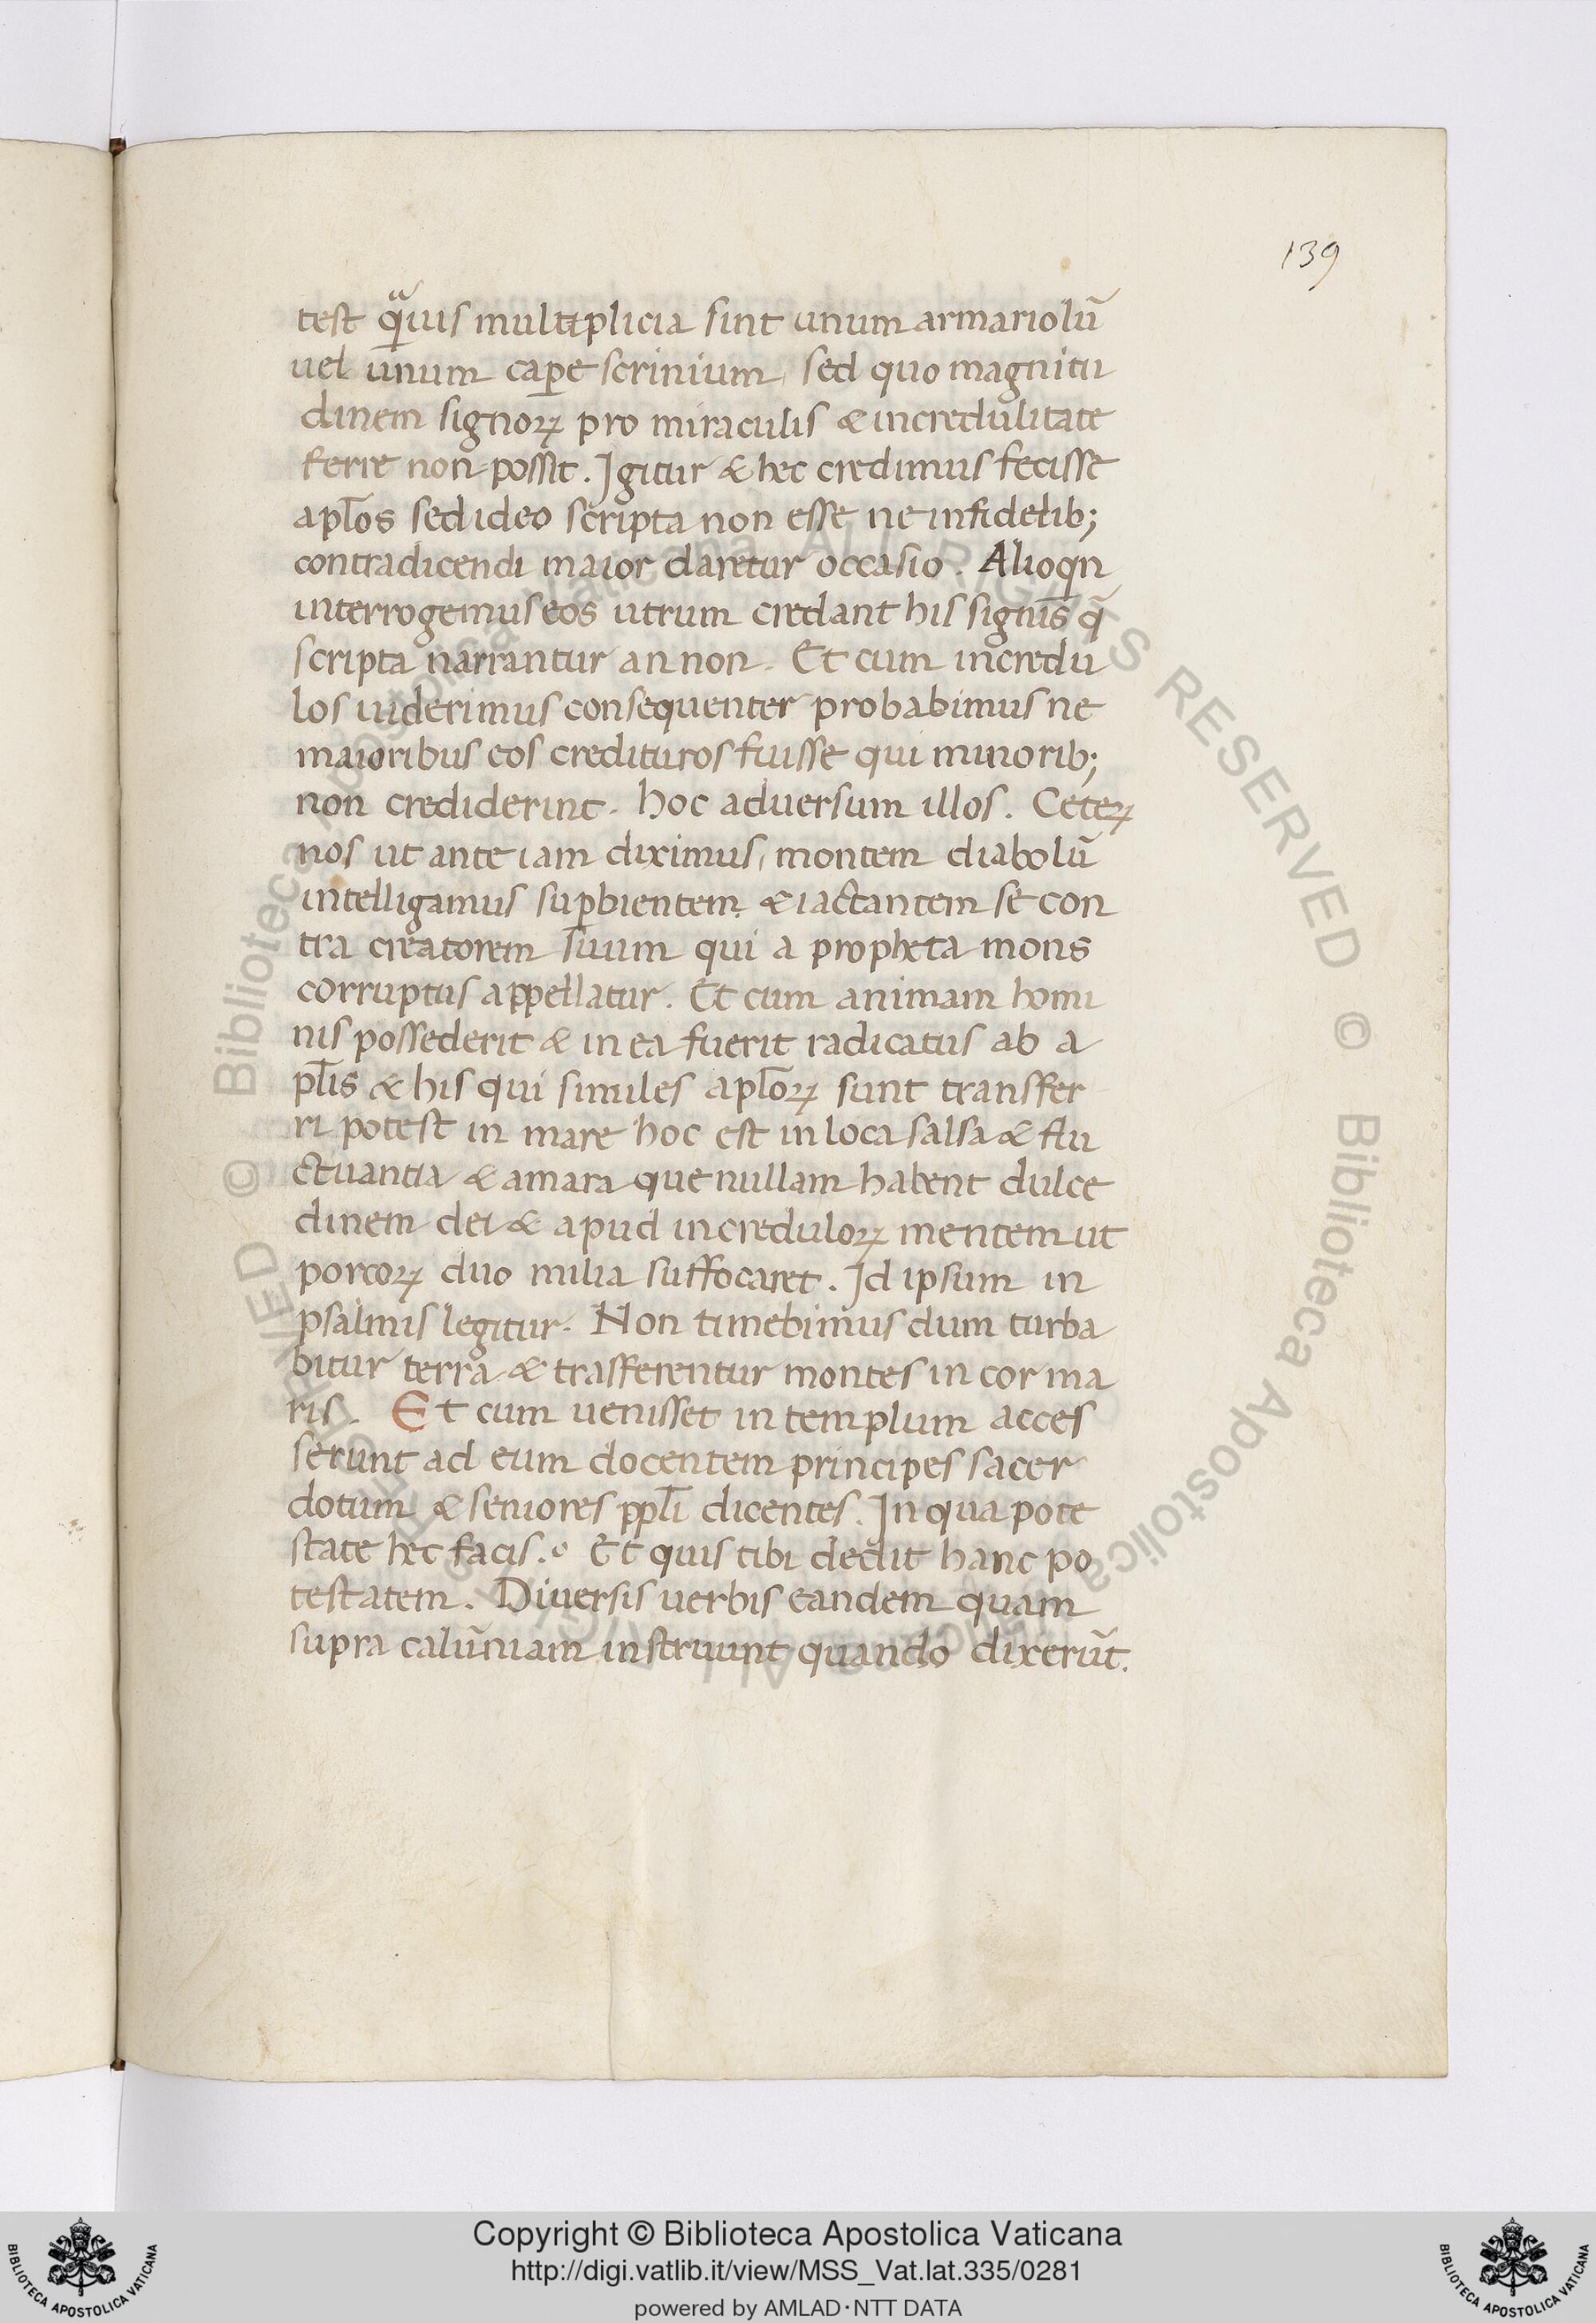 139
test qᷓuis multiplicia sint unum armariolū
uel unum caꝑe scrinium, sed quo magnitu
dinem signoꝝ pro miraculis & incredulitate
ferre non possit. Igitur & hec credimus fecisse
apl̄os sed ideo scripta non esse ne infidelib;
contradicendi maior daretur occasio. Alioqn
interrogemus eos utrum credant his signis q̄
scripta narrantur an non. Et cum incredu
los uiderimus consequenter probabimus ne
maioribus eos credituros fuisse qui minorib;
non crediderint. hoc aduersum illos. Ceteꝝ
nos ut ante iam diximus, montem diabolū
intelligamus suꝑbientem & iactantem se con
tra creatorem suum qui a propheta mons
corruptus appellatur. Et cum animam homi
nis possederit & in ea fuerit radicatus ab a
pl̄is & his qui similes apl̄oꝝ sunt transfer
ri potest in mare hoc est in loca salsa & flu
ctuantia & amara que nullam habent dulce
dinem dei & apud increduloꝝ mentem ut
porcoꝝ duo milia suffocaret. Id ipsum in
psalmis legitur. Non timebimus dum turba
bitur terra & trasferentur montes in cor ma
ris. Et cum uenisset in templum acces
serunt ad eum docentem principes sacer
dotum & seniores ppl̄i dicentes. In qua pote
state hec facis. Et quis tibi dedit hanc po
testatem. Diuersis uerbis eandem quam
supra calūniam instruunt quando dixerūt.
© Biblioteca Apostolica Vaticana ALL RIGHTS RESERVED © Biblioteca Apostolica Vaticana ALL RIGHTS RESERVED
Copyright © Biblioteca Apostolica Vaticana
http://digi.vatlib.it/view/MSS_Vat.lat.335/0281
powered by AMLAD·NTT DATA
BIBLIOTECA APOSTOLICA VATICANA
BIBLIOTECA APOSTOLICA VATICANA